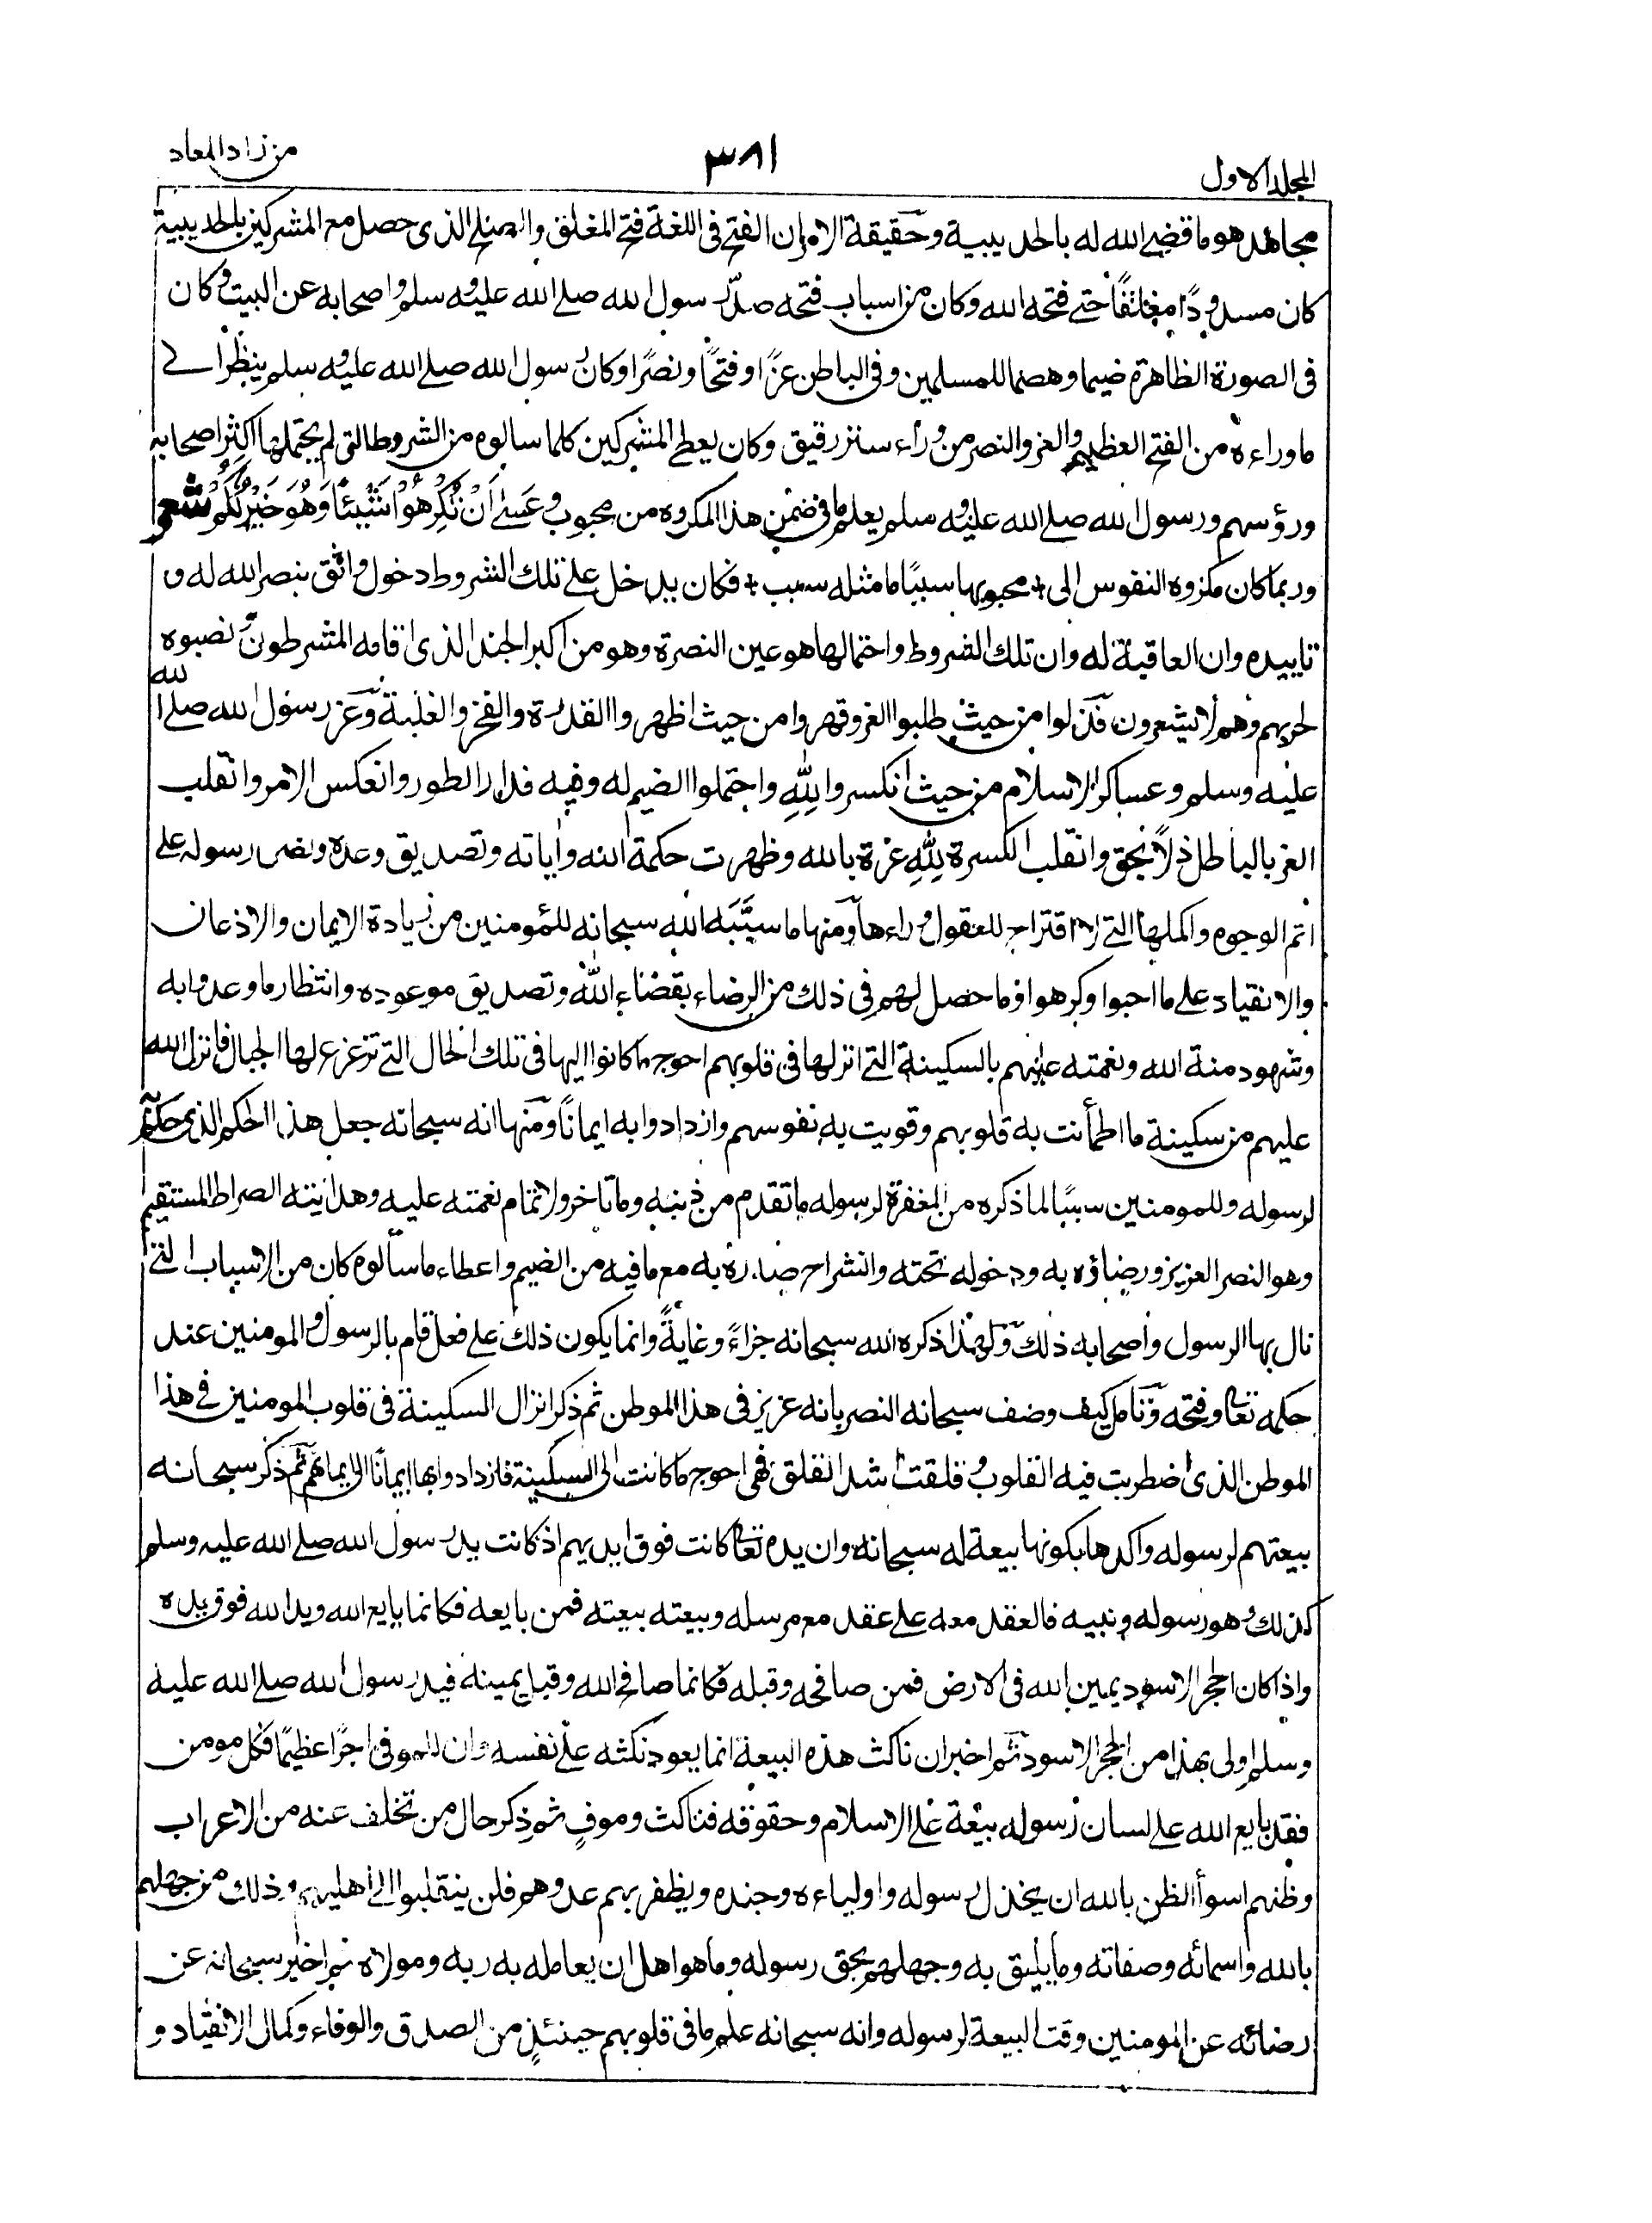 المجلد الاول
٣٨١
من زاد المعاد
مجاهد هو ما قضى الله له بالحديبية وحقيقة الامر ان الفتح فى اللغة فتح المغلق والصلح الذى حصل مع المشركين بالحديبية
كان مسدودًا مغلقًا حتى فتحه الله وكان من اسباب فتحه صدّ رسول الله صلى الله عليه وسلم واصحابه عن البيت وكان
فى الصورة الظاهرة ضيما وهضما للمسلمين وفى الباطن عزًا وفتحًا ونصرًا وكان رسول الله صلى الله عليه وسلم ينظر الى
ما وراءه من الفتح العظيم والعز والنصر من وراء ستر رقيق وكان يعطى المشركين كلما سالوه من الشروط التى لم يحتملها اكثر اصحابه
ورؤسهم ورسول الله صلى الله عليه وسلم يعلم ما فى ضمن هذا المكروه من محبوب وَعَسٰى اَنْ تَكْرَهُوْا شَيْئًا وَّهُوَ خَيْرٌ لَّكُمْ شعر
وربما كان مكروه النفوس الى + محبوبها سببًا ما مثله سبب + فكان يدخل على تلك الشروط دخول واثق بنصر الله له و
تاييده وان العاقبة له وان تلك الشروط واحتمالها هو عين النصرة وهو من اكبر الجند الذى اقامه المشترطون ونصبوه
لحربهم وهم لا يشعرون فذلوا من حيث طلبوا العز وقهروا من حيث اظهروا القدرة والفخر والغلبة وعز رسول الله صلى الله
عليه وسلم وعساكر الاسلام من حيث انكسروا لِلّٰهِ واحتملوا الضيم له وفيه فدار الطور وانعكس الامر وانقلب
العز بالباطل ذلًا بحق وانقلب الكسرة لِلّٰهِ عزة بالله وظهرت حكمة الله واياته وتصديق وعده ونصر رسوله على
اتم الوجوه واكملها التى لا اقتراح للعقول وراءها ومنها ما سبَّبَه الله سبحانه للمؤمنين من زيادة الايمان والاذعان
والانقياد على ما احبوا وكرهوا وما حصل لهم فى ذلك من الرضاء بقضاء الله وتصديق موعوده وانتظار ما وعدوا به
وشهود منة الله ونعمته عليهم بالسكينة التى انزلها فى قلوبهم احوج ما كانوا اليها فى تلك الحال التى تزعزع لها الجبال فانزل الله
عليهم من سكينة ما اطمأنت به قلوبهم وقويت به نفوسهم وازدادوا به ايمانًا ومنها انه سبحانه جعل هذا الحكم الذى حكم به
لرسوله وللمومنين سببًا لما ذكره من المغفرة لرسوله ما تقدم من ذنبه وما تاخر ولاتمام نعمته عليه وهدايته الصراط المستقيم
وهو النصر العزيز ورضاؤه به ودخوله تحته وانشراح صدره به مع ما فيه من الضيم واعطاء ما سألوه كان من الاسباب التى
نال بها الرسول واصحابه ذلك ولهذا ذكره الله سبحانه جزاءً وغايةً وانما يكون ذلك على فعل قام بالرسول والمومنين عند
حكمه تعالى وفتحه وتامل كيف وصف سبحانه النصر بانه عزيز فى هذا الموطن ثم ذكر انزال السكينة فى قلوب المومنين فى هذا
الموطن الذى اضطربت فيه القلوب وقلقت اشد القلق فهى احوج ما كانت الى السكينة فازدادوا بها ايمانًا الى ايمانهم ثم ذكر سبحانه
بيعتهم لرسوله واكدها بكونها بيعة له سبحانه وان يده تعالى كانت فوق ايديهم اذ كانت يد رسول الله صلى الله عليه وسلم
كذلك وهو رسوله ونبيه فالعقد معه على عقد مع مرسله وبيعته بيعته فمن بايعه فكانما بايع الله ويد الله فوق يده
واذا كان الحجر الاسود يمين الله فى الارض فمن صافحه وقبله فكانما صافح الله وقبل يمينه فيد رسول الله صلى الله عليه
وسلم اولى بهذا من الحجر الاسود ثم اخبر ان ناكث هذه البيعة انما يعود نكثه على نفسه وان للموفى اجرًا عظيمًا فكل مومن
فقد بايع الله على لسان رسوله بيعة على الاسلام وحقوقه فناكث وموفٍ ثم ذكر حال من تخلف عنه من الاعراب
وظنهم اسوأ الظن بالله ان يخذل رسوله واولياءه وجنده ويظفر بهم عدوهم فلن ينقلبوا الى اهليهم وذلك من جهلهم
بالله واسمائه وصفاته وما يليق به وجهلهم بحق رسوله وما هو اهل ان يعامله به ربه ومولاه ثم اخبر سبحانه عن
رضائه عن المومنين وقت البيعة لرسوله وانه سبحانه علم ما فى قلوبهم حينئذٍ من الصدق والوفاء وكمال الانقياد و